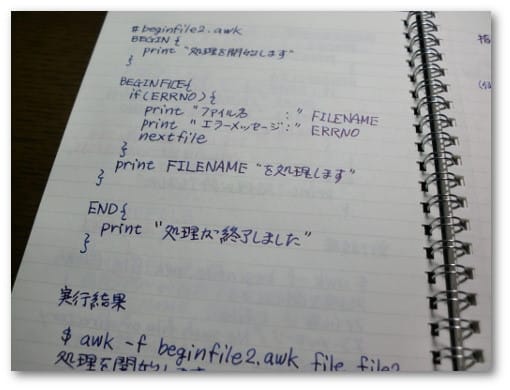 #beginfile2.awk
BEGIN {
print "処理を開始します"
}
BEGINFILE{
if(ERRNO){
print "ファイル名 :" FILENAME
print "エラーメッセージ:" ERRNO
nextfile
}
print FILENAME "を処理します"
}
END{
print "処理が終了しました"
}
実行結果
$ awk -f beginfile2.awk file file2
処理を開始します